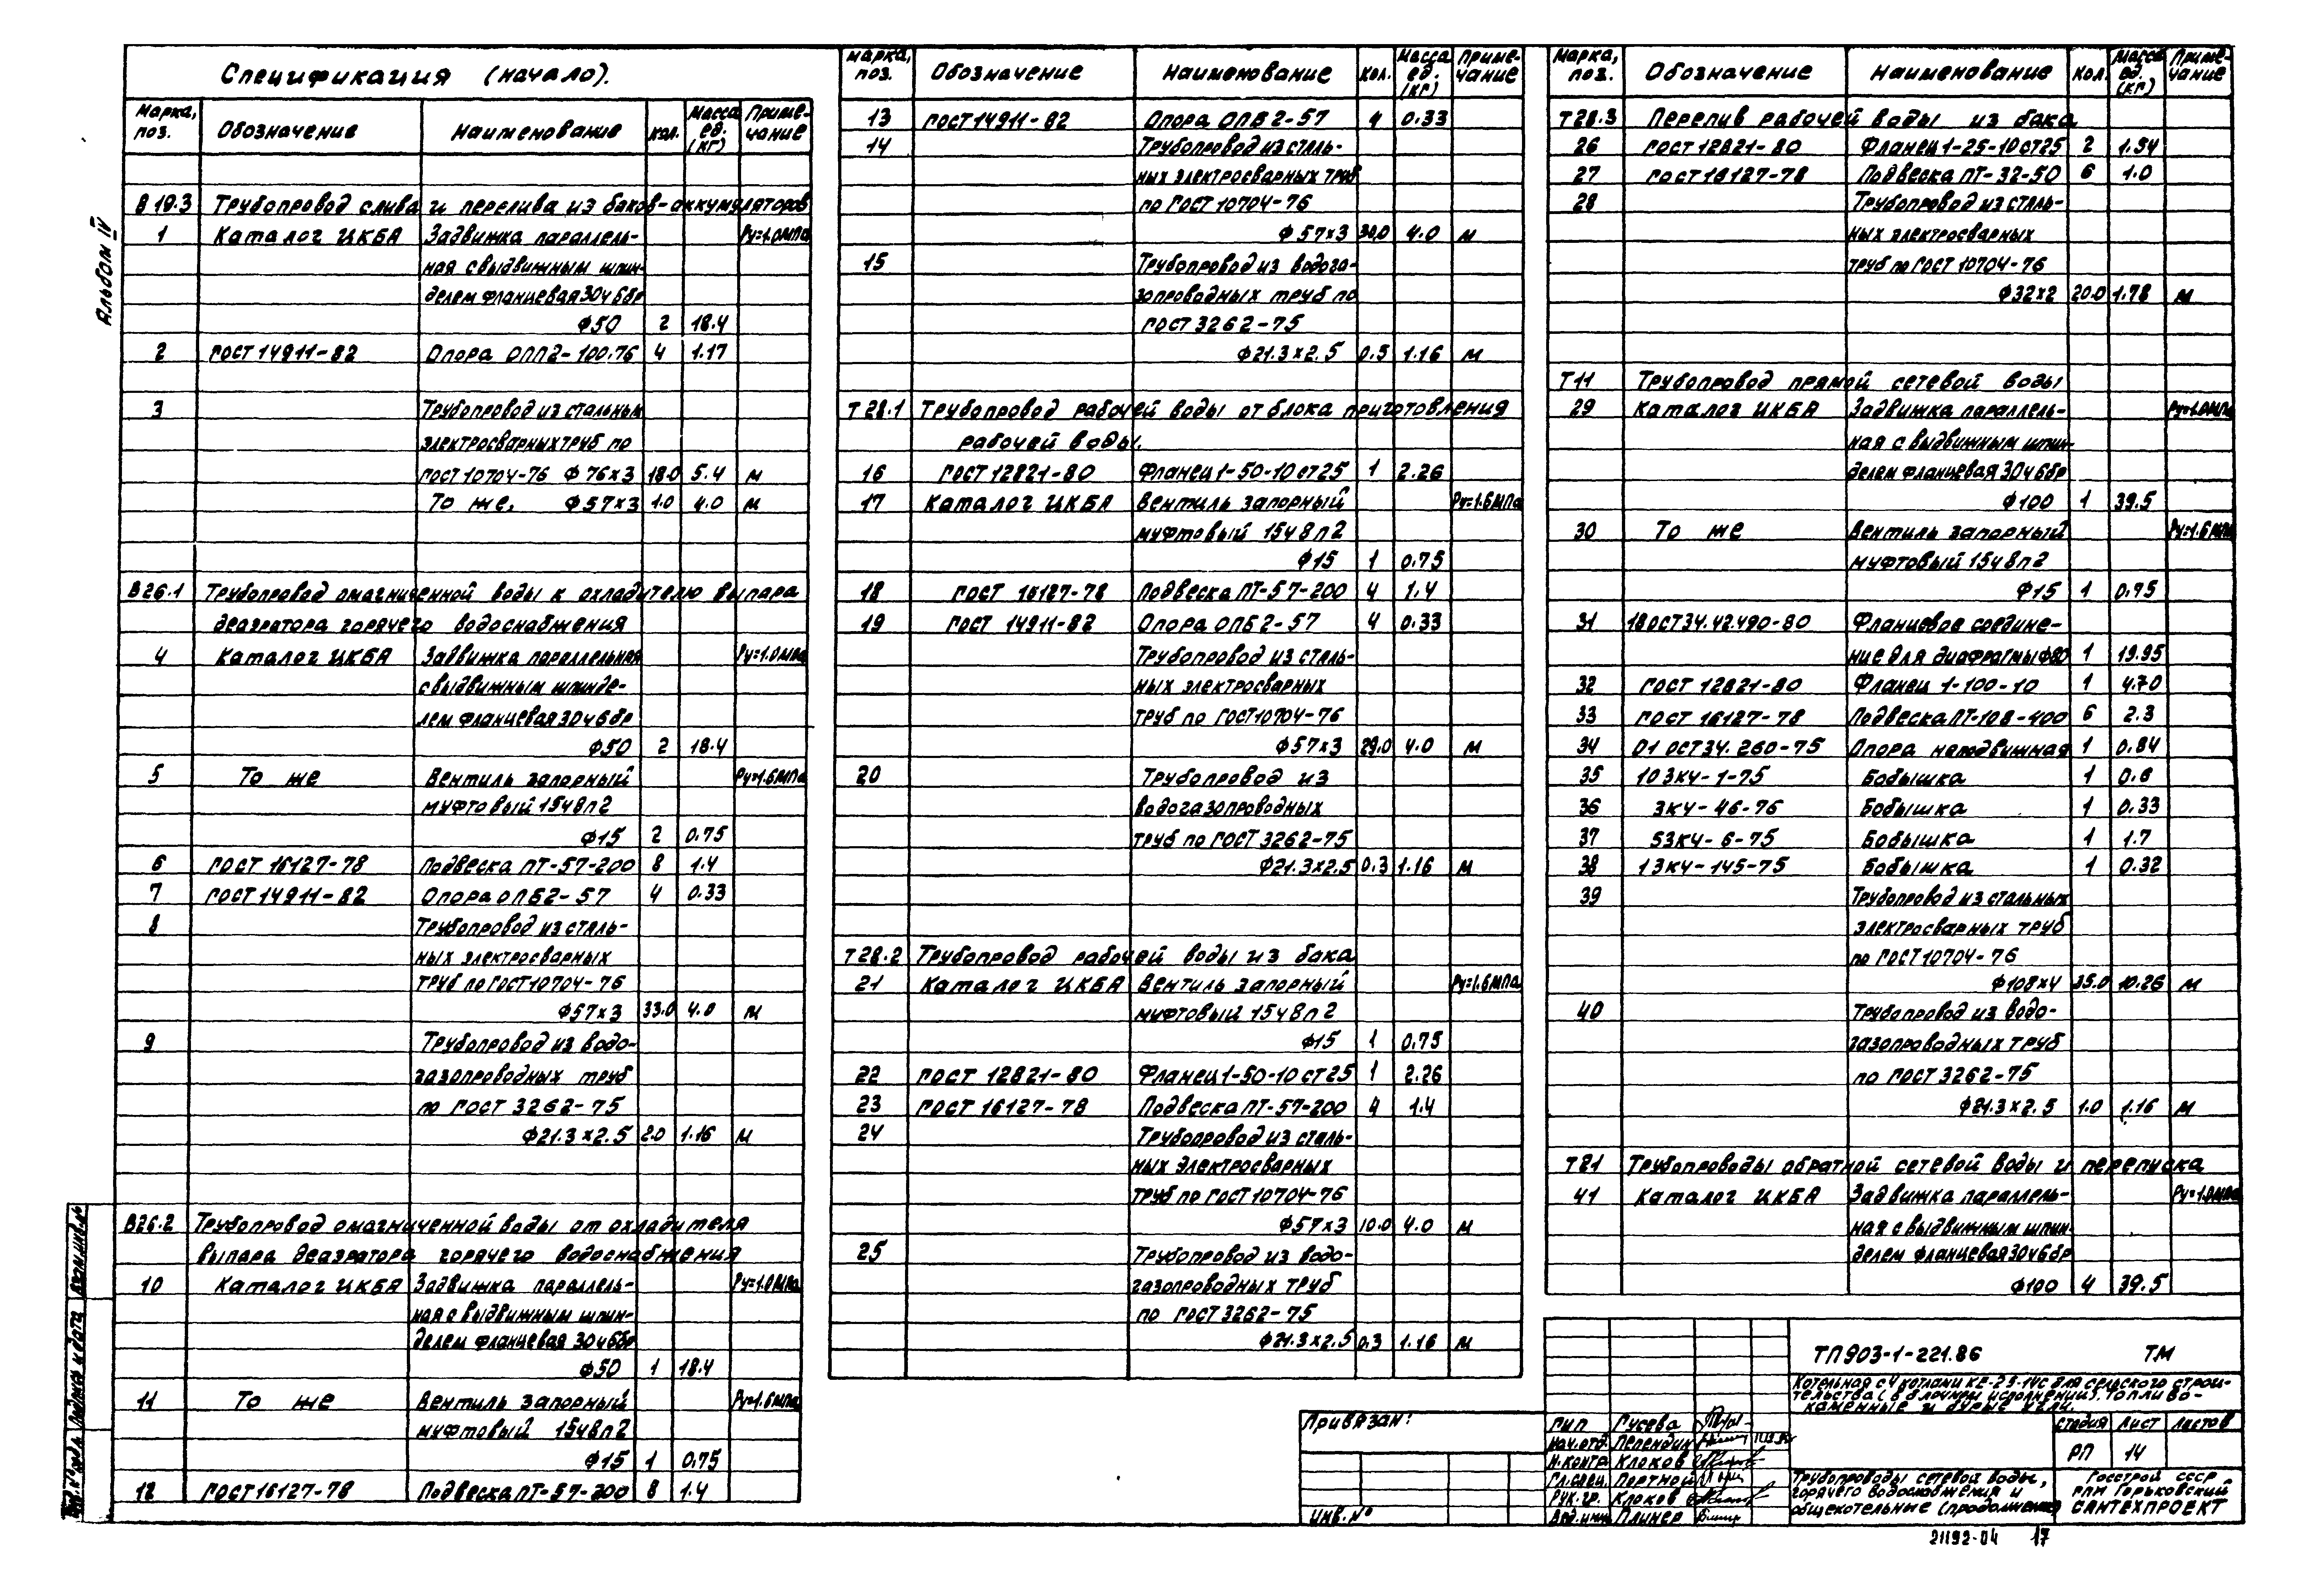 Альбом IV
Спецификация (начало).
Марка, поз. Обозначение Наименование Кол. Масса ед. (кг) Примечание
В19.3 Трубопровод слива и перелива из баков-аккумуляторов
1 Каталог ЦКБА Задвижка параллель- Ру=1.0МПа
ная с выдвижным шпин-
делем фланцевая 30ч6бр
Ф50 2 18.4
2 ГОСТ 14911-82 Опора ОПП2-100.76 4 1.17
3 Трубопровод из стальных
электросварных труб по
ГОСТ 10704-76 Ф76х3 18.0 5.4 м
То же, Ф57х3 1.0 4.0 м
В26.1 Трубопровод омагниченной воды к охладителю выпара
деаэратора горячего водоснабжения
4 Каталог ЦКБА Задвижка параллельная Ру=1.0МПа
с выдвижным шпинде-
лем фланцевая 30ч6бр
Ф50 2 18.4
5 То же Вентиль запорный Ру=1.6МПа
муфтовый 15ч8п2
Ф15 2 0.75
6 ГОСТ 16127-78 Подвеска ПТ-57-200 8 1.4
7 ГОСТ 14911-82 Опора ОПБ2-57 4 0.33
8 Трубопровод из сталь-
ных электросварных
труб по ГОСТ 10704-76
Ф57х3 33.0 4.0 м
9 Трубопровод из водо-
газопроводных труб
по ГОСТ 3262-75
Ф21.3х2.5 2.0 1.16 м
В26.2 Трубопровод омагниченной воды от охладителя
выпара деаэратора горячего водоснабжения
10 Каталог ЦКБА Задвижка параллель- Ру=1.0МПа
ная с выдвижным шпин-
делем фланцевая 30ч6бр
Ф50 1 18.4
11 То же Вентиль запорный Ру=1.6МПа
муфтовый 15ч8п2
Ф15 1 0.75
12 ГОСТ 16127-78 Подвеска ПТ-57-200 8 1.4
Марка, поз. Обозначение Наименование Кол. Масса ед. (кг) Примечание
13 ГОСТ 14911-82 Опора ОПБ2-57 4 0.33
14 Трубопровод из сталь-
ных электросварных труб
по ГОСТ 10704-76
Ф57х3 30.0 4.0 м
15 Трубопровод из водога-
зопроводных труб по
ГОСТ 3262-75
Ф21.3х2.5 0.5 1.16 м
Т28.1 Трубопровод рабочей воды от блока приготовления
рабочей воды.
16 ГОСТ 12821-80 Фланец 1-50-10 ст25 1 2.26
17 Каталог ЦКБА Вентиль запорный Ру=1.6МПа
муфтовый 15ч8п2
Ф15 1 0.75
18 ГОСТ 16127-78 Подвеска ПТ-57-200 4 1.4
19 ГОСТ 14911-82 Опора ОПБ2-57 4 0.33
Трубопровод из сталь-
ных электросварных
труб по ГОСТ 10704-76
Ф57х3 29.0 4.0 м
20 Трубопровод из
водогазопроводных
труб по ГОСТ 3262-75
Ф21.3х2.5 0.3 1.16 м
Т28.2 Трубопровод рабочей воды из бака
21 Каталог ЦКБА Вентиль запорный Ру=1.6МПа
муфтовый 15ч8п2
Ф15 1 0.75
22 ГОСТ 12821-80 Фланец 1-50-10 ст25 1 2.26
23 ГОСТ 16127-78 Подвеска ПТ-57-200 4 1.4
24 Трубопровод из сталь-
ных электросварных
труб по ГОСТ 10704-76
Ф57х3 10.0 4.0 м
25 Трубопровод из водо-
газопроводных труб
по ГОСТ 3262-75
Ф21.3х2.5 0.3 1.16 м
Марка, поз. Обозначение Наименование Кол. Масса ед. (кг) Примечание
Т28.3 Перелив рабочей воды из бака
26 ГОСТ 12821-80 Фланец 1-25-10 ст25 2 1.34
27 ГОСТ 16127-78 Подвеска ПТ-32-50 6 1.0
28 Трубопровод из сталь-
ных электросварных
труб по ГОСТ 10704-76
Ф32х2 20.0 1.78 м
Т11 Трубопровод прямой сетевой воды
29 Каталог ЦКБА Задвижка параллель- Ру=1.0МПа
ная с выдвижным шпин-
делем фланцевая 30ч6бр
Ф100 1 39.5
30 То же Вентиль запорный Ру=1.6МПа
муфтовый 15ч8п2
Ф15 1 0.75
31 18 ОСТ 34.42.490-80 Фланцевое соедине-
ние для диафрагмы Ф80 1 19.95
32 ГОСТ 12821-80 Фланец 1-100-10 1 4.70
33 ГОСТ 16127-78 Подвеска ПТ-108-400 6 2.3
34 01 ОСТ 34.260-75 Опора неподвижная 1 0.84
35 10ЗК4-1-75 Бобышка 1 0.6
36 ЗК4-46-76 Бобышка 1 0.33
37 53К4-6-75 Бобышка 1 1.7
38 13К4-145-75 Бобышка 1 0.32
39 Трубопровод из стальных
электросварных труб
по ГОСТ 10704-76
Ф108х4 35.0 10.26 м
40 Трубопровод из водо-
газопроводных труб
по ГОСТ 3262-75
Ф21.3х2.5 1.0 1.16 м
Т21 Трубопроводы обратной сетевой воды и перепуска
41 Каталог ЦКБА Задвижка параллель- Ру=1.0МПа
ная с выдвижным шпин-
делем фланцевая 30ч6бр
Ф100 4 39.5
ТП903-1-221.86 ТМ
Котельная с 4 котлами КЕ-2.5-14С для сельского строи-
тельства (в блочном исполнении). Топливо-
каменные и бурые угли.
Привязан:
Инв.№
ГИП Гусева
Нач.отд. Пепендин
Н.контр Клоков
Гл.спец. Портной
Рук.гр. Клоков
Вед.инж Плинер
Стадия Лист Листов
РП 14
Трубопроводы сетевой воды,
горячего водоснабжения и
общекотельные (продолжение)
Госстрой СССР
ГПИ Горьковский
САНТЕХПРОЕКТ
Инв.№подл. Подпись и дата Взам.инв.№
21192-04 17